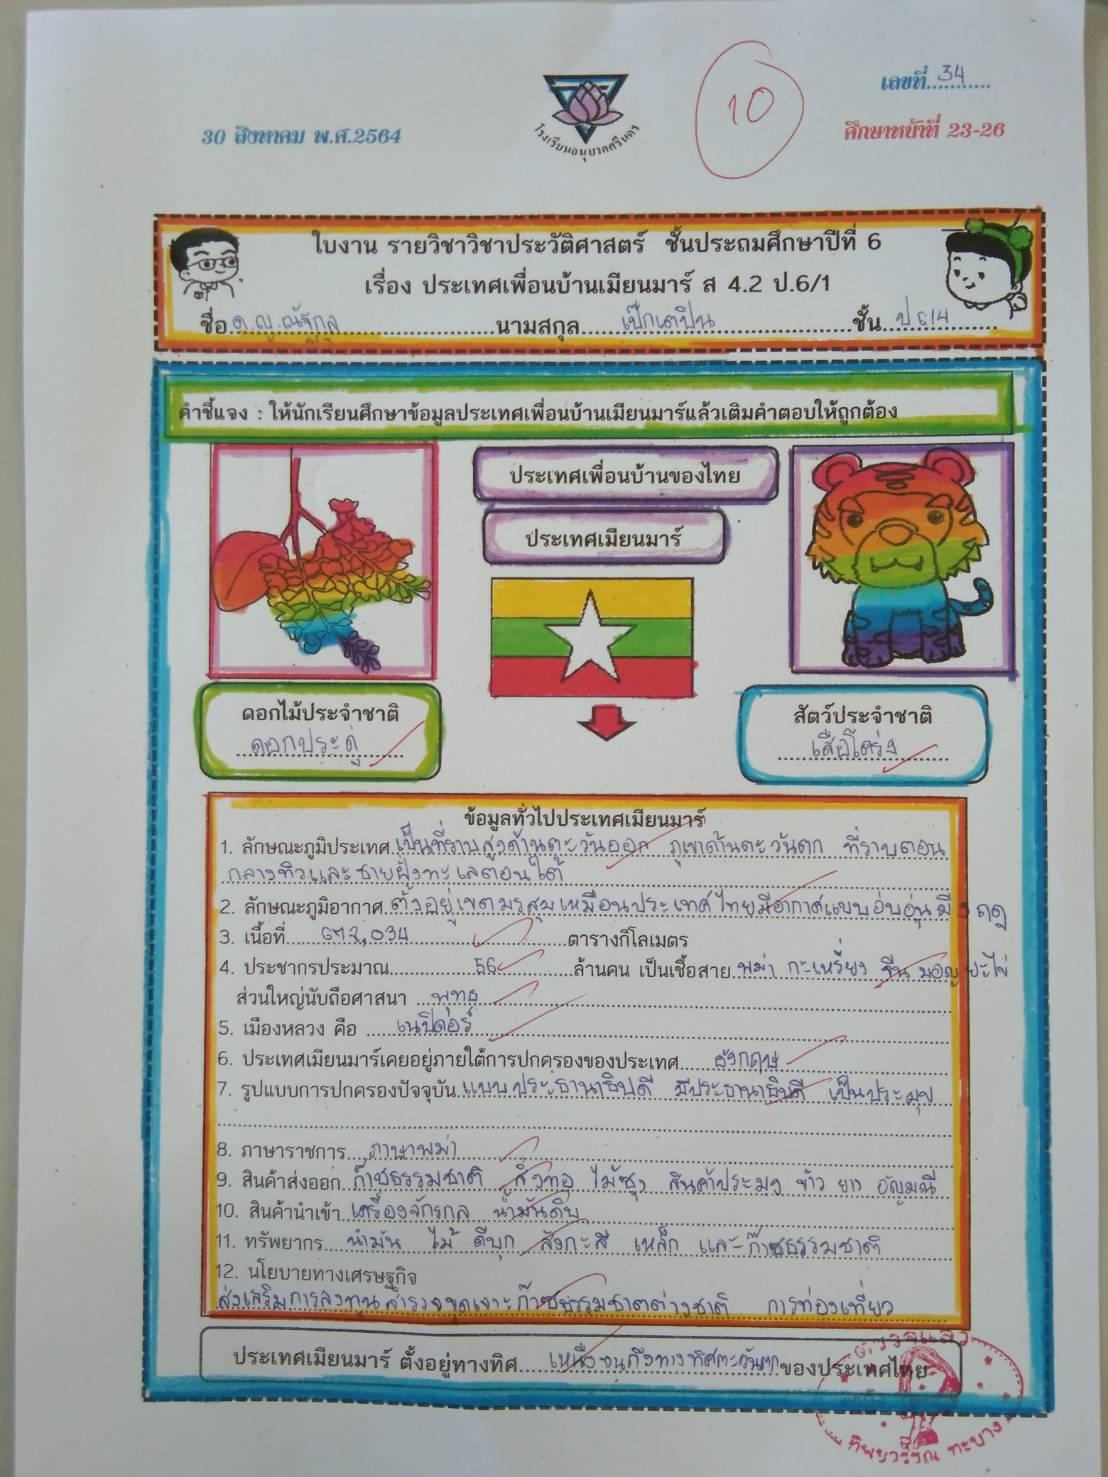 เลขที่ 34
30 สิงหาคม พ.ศ.2564
โรงเรียนอนุบาลศรีนคร
10
ศึกษาหน้าที่ 23-26
ใบงาน รายวิชาวิชาประวัติศาสตร์ ชั้นประถมศึกษาปีที่ 6
เรื่อง ประเทศเพื่อนบ้านเมียนมาร์ ส 4.2 ป.6/1
ชื่อ ด.ญ.ณัฐกุล นามสกุล เป๊กเตปิน ชั้น ป.6/4
คำชี้แจง : ให้นักเรียนศึกษาข้อมูลประเทศเพื่อนบ้านเมียนมาร์แล้วเติมคำตอบให้ถูกต้อง
ประเทศเพื่อนบ้านของไทย
ประเทศเมียนมาร์
ดอกไม้ประจำชาติ
ดอกประดู่
สัตว์ประจำชาติ
เสือโคร่ง
ข้อมูลทั่วไปประเทศเมียนมาร์
1. ลักษณะภูมิประเทศ เป็นที่ราบสูงด้านตะวันออก ภูเขาด้านตะวันตก ที่ราบตอน
กลางทิวและชายฝั่งทะเลตอนใต้
2. ลักษณะภูมิอากาศ ตั้งอยู่เขตมรสุมเหมือนประเทศไทยมีอากาศแบบอบอุ่น มี 3 ฤดู
3. เนื้อที่ 672,034 ตารางกิโลเมตร
4. ประชากรประมาณ 56 ล้านคน เป็นเชื้อสาย พม่า กะเหรี่ยง จีน มอญ ยะไข่
ส่วนใหญ่นับถือศาสนา พุทธ
5. เมืองหลวง คือ เนปิดอร์
6. ประเทศเมียนมาร์เคยอยู่ภายใต้การปกครองของประเทศ อังกฤษ
7. รูปแบบการปกครองปัจจุบัน แบบประธานาธิบดี มีประธานาธิบดี เป็นประมุข
8. ภาษาราชการ ภาษาพม่า
9. สินค้าส่งออก ก๊าซธรรมชาติ สิ่งทอ ไม้ซุง สินค้าประมง ข้าว ยาง อัญมณี
10. สินค้านำเข้า เครื่องจักรกล น้ำมันดิบ
11. ทรัพยากร น้ำมัน ไม้ ดีบุก สังกะสี เหล็ก และก๊าซธรรมชาติ
12. นโยบายทางเศรษฐกิจ
ส่งเสริมการลงทุน สำรวจขุดเจาะก๊าซธรรมชาติต่างชาติ การท่องเที่ยว
ประเทศเมียนมาร์ ตั้งอยู่ทางทิศ เหนือจนถึงทางทิศตะวันตก ของประเทศไทย
ตรวจแล้ว
ทิพยวรรณ ทะบาง